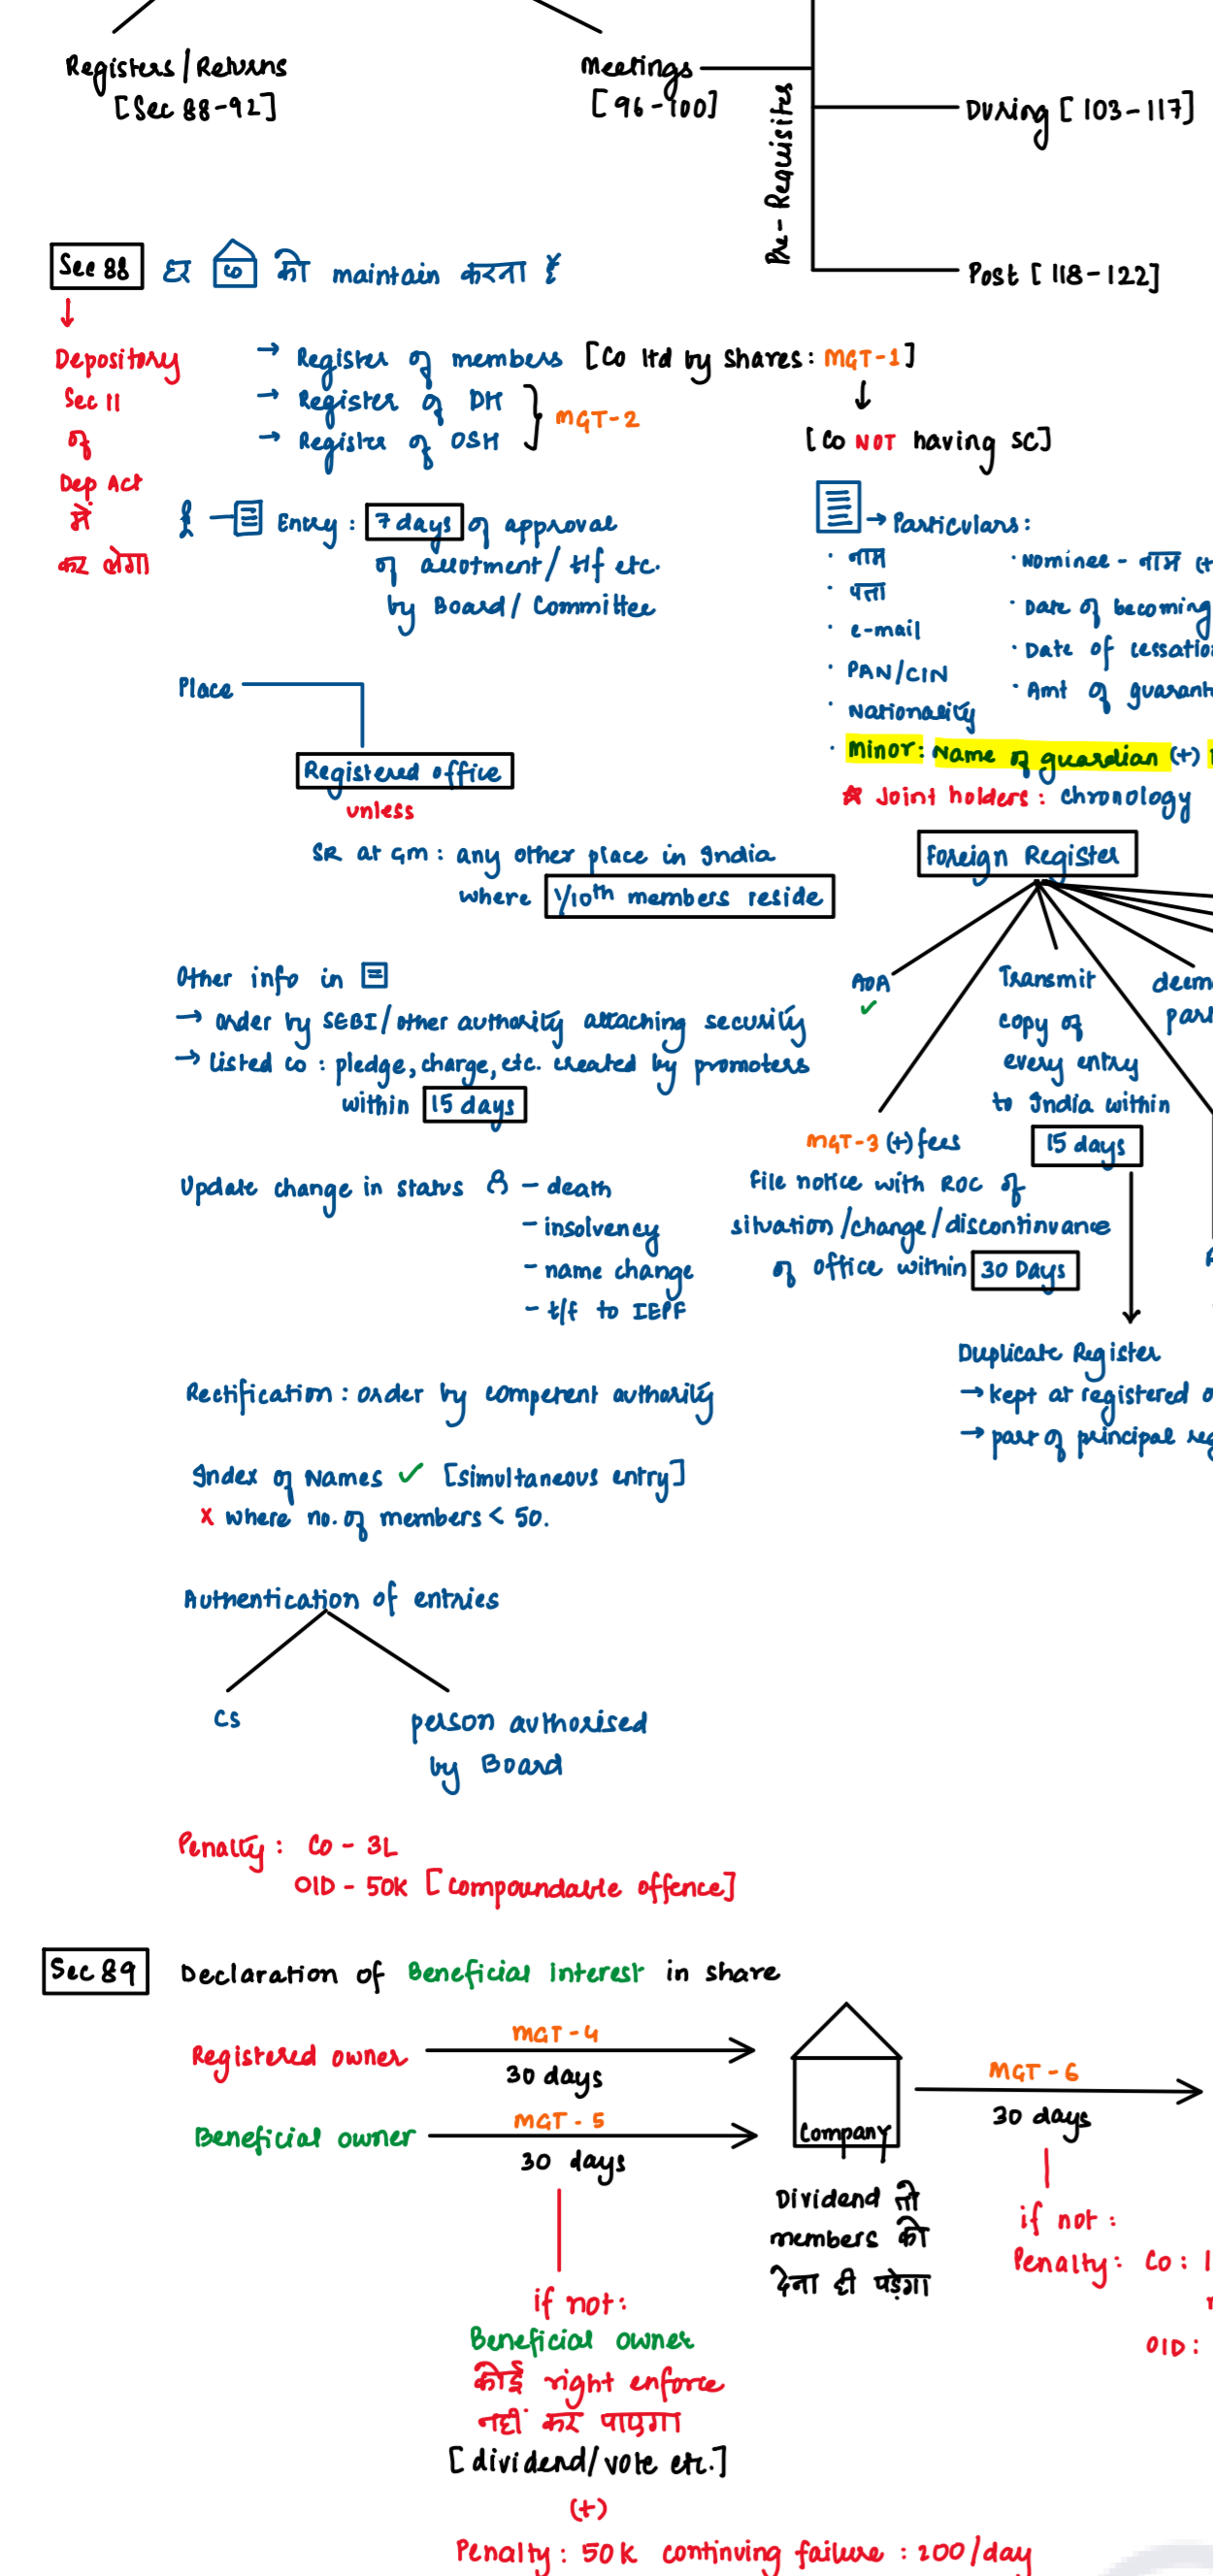 Registers/Returns
[Sec 88-92]
Meetings
[96-100]
Pre-Requisites
During [103-117]
Post [118-122]
Sec 88 हर co को maintain करना है
Depository
Sec 11
of
Dep Act
में
कर लेगा
→ Register of members [Co ltd by shares: MGT-1]
→ Register of DH
→ Register of OSH
MGT-2
[Co NOT having SC]
Entry: 7 days of approval
of allotment/ t/f etc.
by Board/ Committee
→ Particulars:
· नाम
· पत्ता
· e-mail
· PAN/CIN
· Nationality
· Minor: Name of guardian (+)
· Nominee - नाम (+
· Date of becoming
· Date of cessation
· Amt of guarant
* Joint holders: chronology
Place
Registered office
unless
SR at GM: any other place in India
where 1/10th members reside
Foreign Register
AOA
✓
Transmit
copy of
every entry
to India within
15 days
deem
par
MGT-3 (+) fees
File notice with ROC of
situation/change/discontinuance
of office within 30 Days
Duplicate Register
→ kept at registered o
→ part of principal reg
Other info in
→ order by SEBI/other authority attaching security
→ Listed co: pledge, charge, etc. created by promoters
within 15 days
Update change in status - death
- insolvency
- name change
- t/f to IEPF
Rectification: order by competent authority
Index of Names ✓ [simultaneous entry]
x where no. of members < 50.
Authentication of entries
CS
person authorised
by Board
Penalty: Co - 3L
OID - 50K [compoundable offence]
Sec 89 Declaration of Beneficial interest in share
Registered owner
MGT-4
30 days
Beneficial owner
MGT-5
30 days
Company
MGT-6
30 days
Dividend तो
members को
देना ही पड़ेगा
if not:
Penalty: Co: 1
OID:
if not:
Beneficial owner
कोई right enforce
नहीं कर पाएगा
[dividend/vote etc.]
(+)
Penalty: 50K continuing failure: 200/day